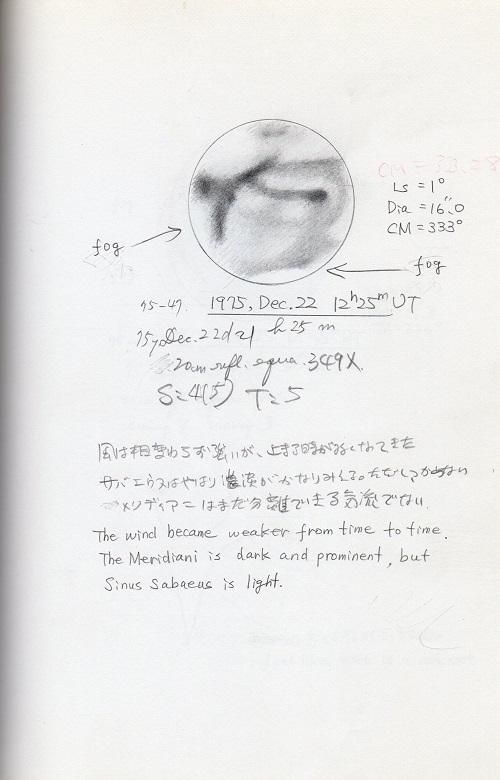 Ls = 1°
Dia = 16."0
CM = 333°
fog
fog
75-47. 1975, Dec. 22 12h25m UT
75y Dec. 22d 21h 25m
20cm refl. equa. 349X.
S=4(5) T=5
風は相変わらず強いが、止まる時が多くなってきた
サバエウスはやはり濃淡がかなりみえる。
メリディアニはまだ分離できる気流でない.
The wind became weaker from time to time.
The Meridiani is dark and prominent, but
Sinus Sabaeus is light.